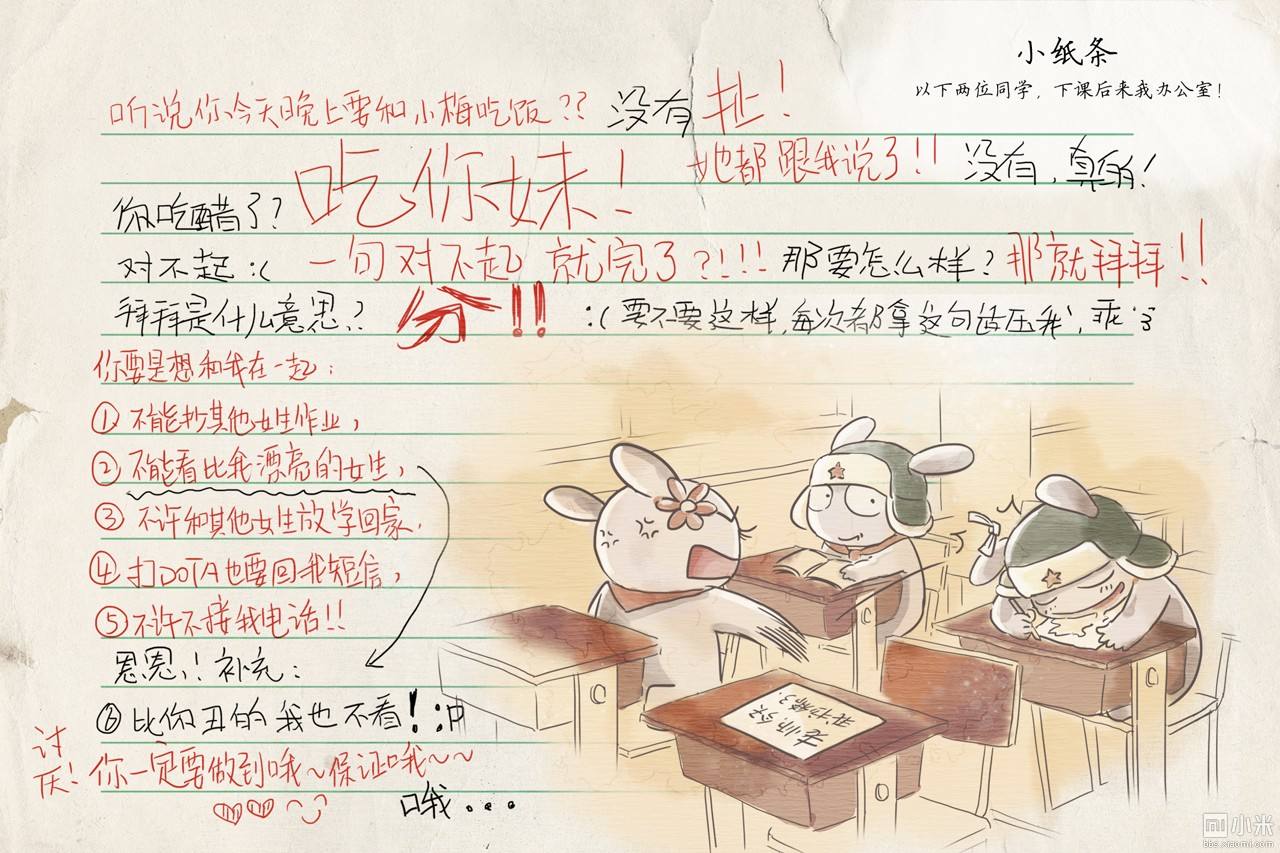 小纸条
以下两位同学，下课后来我办公室！
听说你今天晚上要和小梅吃饭？？ 没有 扯！
吃你妹！ 她都跟我说了！！ 没有，真的！
你吃醋了？
对不起：( 一句对不起 就完了？！！！ 那要怎么样？ 那就拜拜！！
拜拜是什么意思？ 分！！ :( 要不要这样，每次都拿这句话压我，乖
你要是想和我在一起：
① 不能抄其他女生作业，
② 不能看比我漂亮的女生，
③ 不许和其他女生放学回家，
④ 打DOTA也要回我短信，
⑤ 不许不接我电话！！
恩恩，！补充：
⑥ 比你丑的我也不看！:p
讨厌！ 你一定要做到哦～保证哦～～
哦...
小米
bbs.xiaomi.com